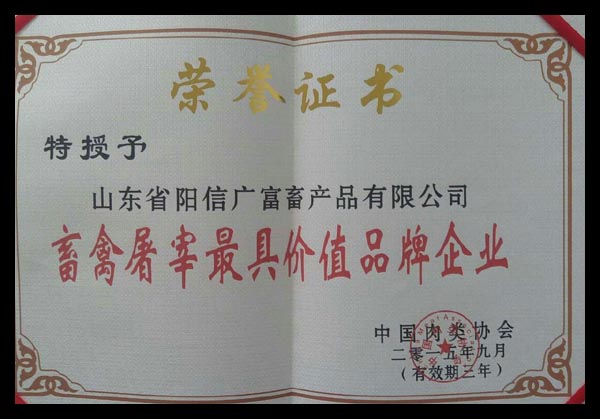 荣誉证书
特授予
山东省阳信广富畜产品有限公司
畜禽屠宰最具价值品牌企业
中国肉类协会
二零一五年九月
(有效期三年)